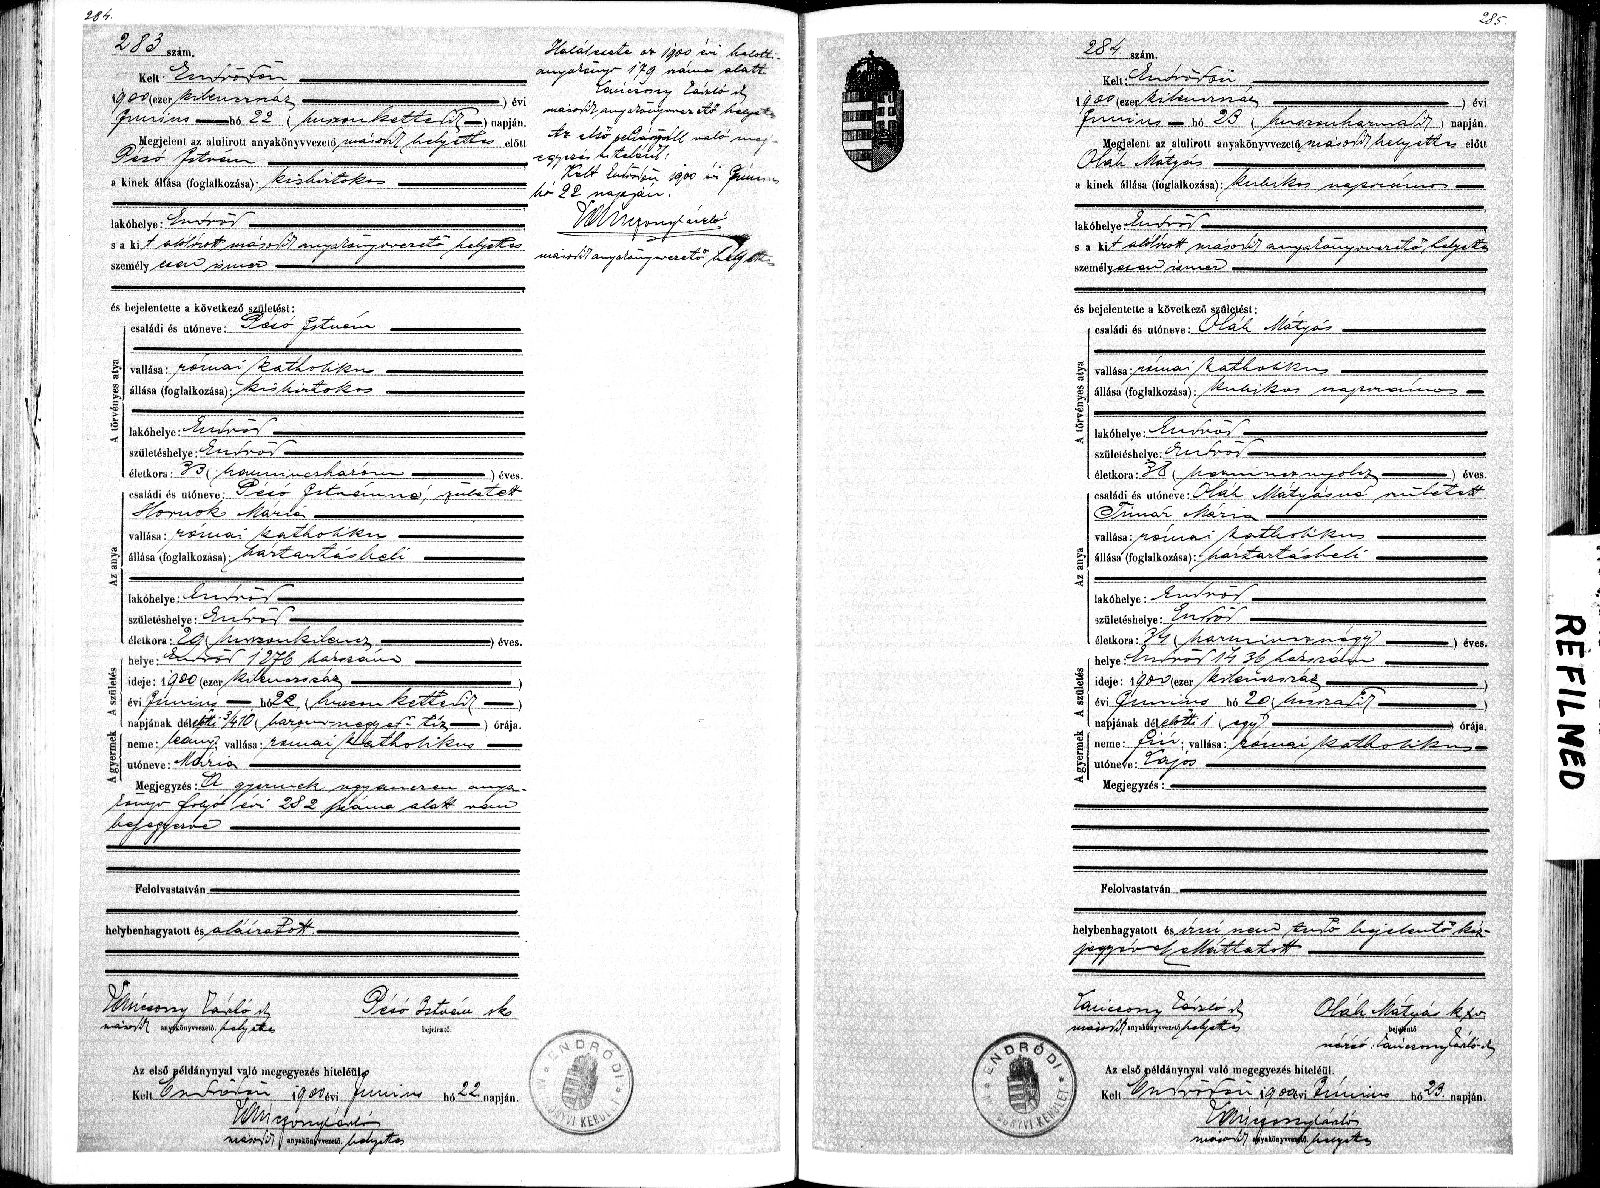 284.
283 szám.
Kelt Endrődön
1900 (ezer kilenczszáz) évi
Junius hó 22 (huszonkettedik) napján.
Megjelent az alulirott anyakönyvvezető másodk helyettes előtt
István
a kinek állása (foglalkozása): kisbirtokos
lakóhelye: Endrőd
s a kit alólirott másodk anyakönyvvezető helyettes
személyesen ismer
és bejelentette a következő születést:
A törvényes atya
családi és utóneve: István
vallása: római katholikus
állása (foglalkozása): kisbirtokos
lakóhelye: Endrőd
születéshelye: Endrőd
életkora: 33 (harminczhárom) éves.
Az anya
családi és utóneve: Istvánné, született
Hornok Mária
vallása: római katholikus
állása (foglalkozása): háztartásbeli
lakóhelye: Endrőd
születéshelye: Endrőd
életkora: 29 (huszonkilencz) éves.
A születés
helye: Endrőd 1276 házszám
ideje: 1900 (ezer kilenczszáz)
évi Junius hó 22 (huszonkettedik)
napjának délelőtti 3/410 (háromnegyed tíz) órája.
A gyermek
neme: leány; vallása: római katholikus
utóneve: Mária
Megjegyzés: A gyermek ugyanezen anya-
könyv folyó évi 282 száma alatt van
bejegyezve
Felolvastatván
helybenhagyatott és aláiratott
Tanicsony László sk
másodk anyakönyvvezető. helyettes
István sk
bejelentő.
Az első példánynyal való megegyezés hiteléül.
Kelt Endrődön 1900 évi Junius hó 22 napján.
másodk anyakönyvvezető. helyettes
ENDRŐDI
KERÜLET
Halálesete az 1900 évi halotti
anyakönyv 179 száma alatt
László sk
másodk anyakönyvvezető helyettes
Az első példánynyal való meg-
egyezés hiteléül:
Kelt Endrődön 1900 évi Junius
hó 22 napján.
másodk anyakönyvvezető helyettes
285.
284 szám.
Kelt: Endrődön
1900 (ezer kilenczszáz) évi
Junius hó 23 (huszonharmadik) napján.
Megjelent az alulirott anyakönyvvezető másodk helyettes előtt
Oláh Mátyás
a kinek állása (foglalkozása): kubikos napszámos
lakóhelye: Endrőd
s a kit alólirott másodk anyakönyvvezető helyettes
személyesen ismer
és bejelentette a következő születést:
A törvényes atya
családi és utóneve: Oláh Mátyás
vallása: római katholikus
állása (foglalkozása): kubikos napszámos
lakóhelye: Endrőd
születéshelye: Endrőd
életkora: 38 (harmincznyolcz) éves.
Az anya
családi és utóneve: Oláh Mátyásné született
Timár Mária
vallása: római katholikus
állása (foglalkozása): háztartásbeli
lakóhelye: Endrőd
születéshelye: Endrőd
életkora: 34 (harmincznégy) éves.
A születés
helye: Endrőd 1436 házszám
ideje: 1900 (ezer kilenczszáz)
évi Junius hó 20 (huszadik)
napjának délelőtti 1 (egy) órája.
A gyermek
neme: fiú; vallása: római katholikus
utóneve: Lajos
Megjegyzés:
Felolvastatván
helybenhagyatott és irni nem tudó bejelentő kéz-
jegyével elláttatott
László sk
másodk anyakönyvvezető helyettes
Oláh Mátyás
bejelentő
László sk
Az első példánynyal való megegyezés hiteléül.
Kelt Endrődön 1900 évi Junius hó 23. napján.
másodk anyakönyvvezető. helyettes
ENDRŐDI
KERÜLET
REFILMED